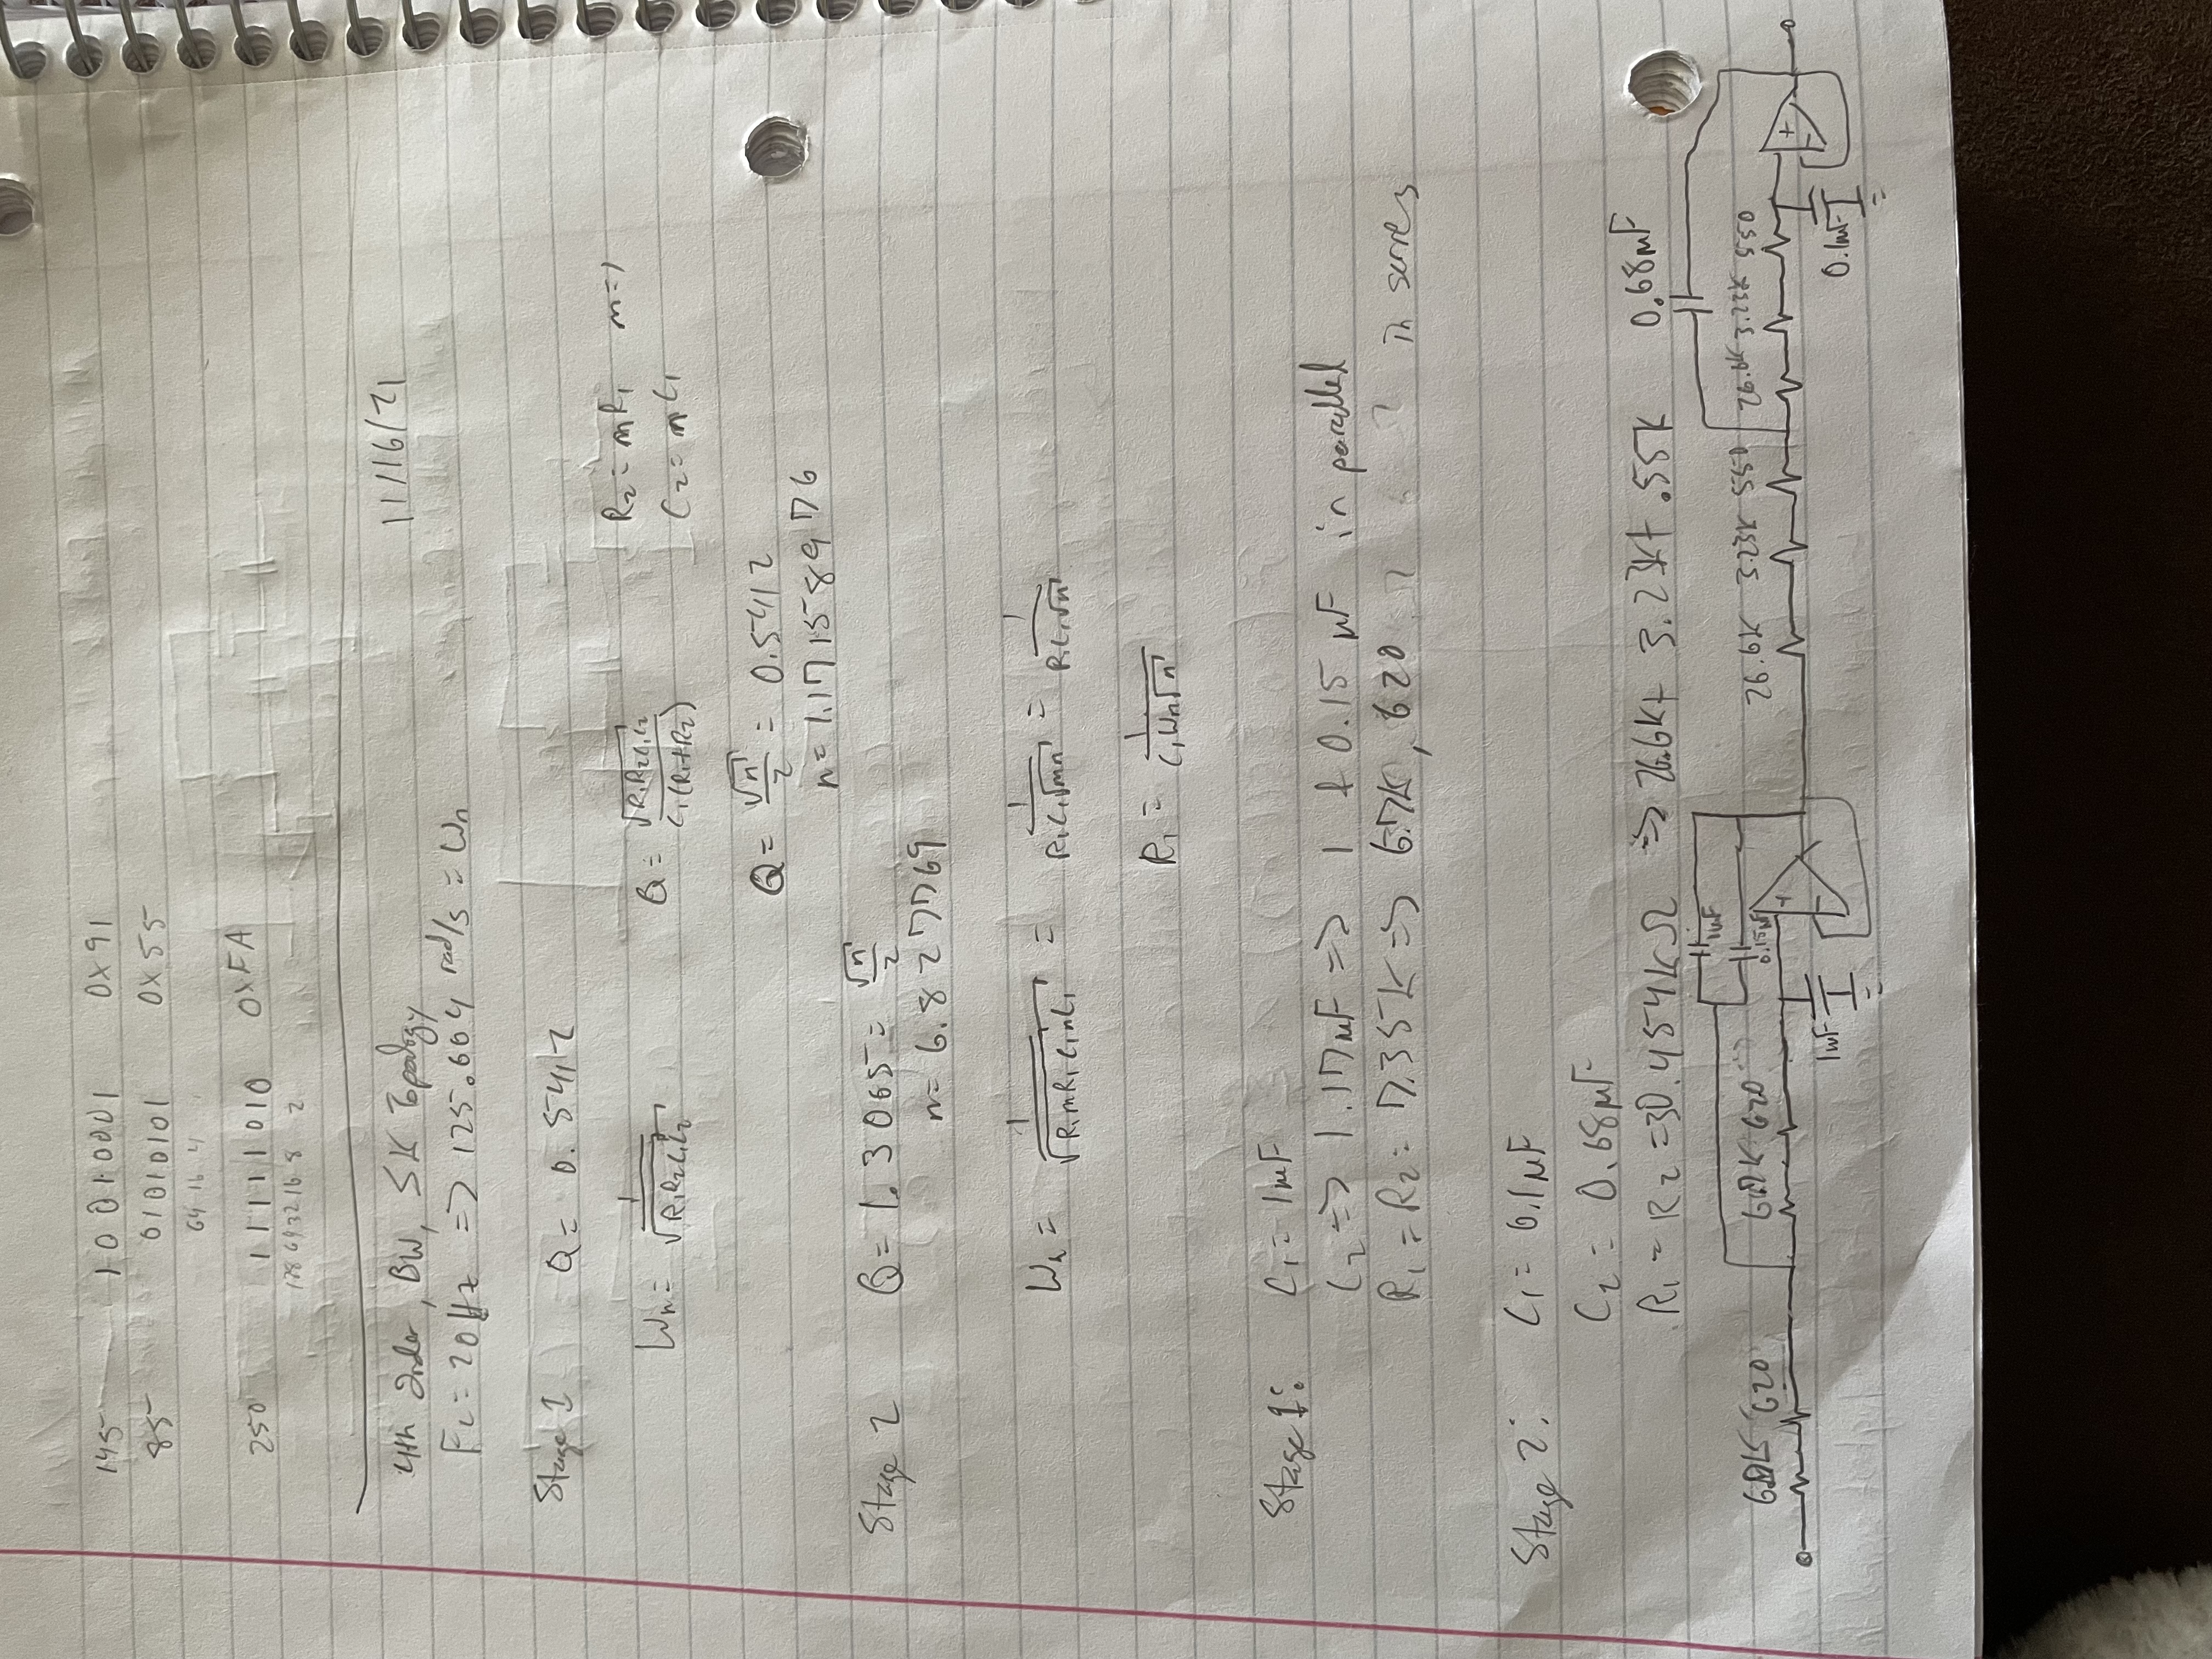 145 10010001 0x91
85 01010101 0x55
64 16 4
250 11111010 0xFA
128 64 32 16 8 2
4th Order, BW, SK Topology 11/16/21
Fc = 20Hz => 125.664 rad/s = Wn
Stage 1 Q = 0.5412
Wn = 1/√(R1R2C1C2) Q = √(R1R2C1C2)/(C1(R1+R2)) R2 = mR1 m=1
C2 = nC1
Q = √n/2 = 0.5412
n = 1.17158976
Stage 2 Q = 1.3065 = √n/2
n = 6.827769
Wn = 1/√(R1mR1C1nC1) = 1/(R1C1√mn) = 1/(R1C1√n)
R1 = 1/(C1Wn√n)
Stage 1: C1 = 1μF
C2 => 1.17μF => 1 + 0.15 μF in parallel
R1 = R2 = 7.35K => 6.7K, 620 in series
Stage 2: C1 = 0.1μF
C2 = 0.68μF
R1 = R2 = 30.454KΩ => 26.6K+ 3.23K+ .55K 0.68μF
1μF
6.7K 620 6.7K 620 0.15μF 26.6K 3.23K 550 26.6K 3.23K 550
+ +
1μF - 0.1μF -